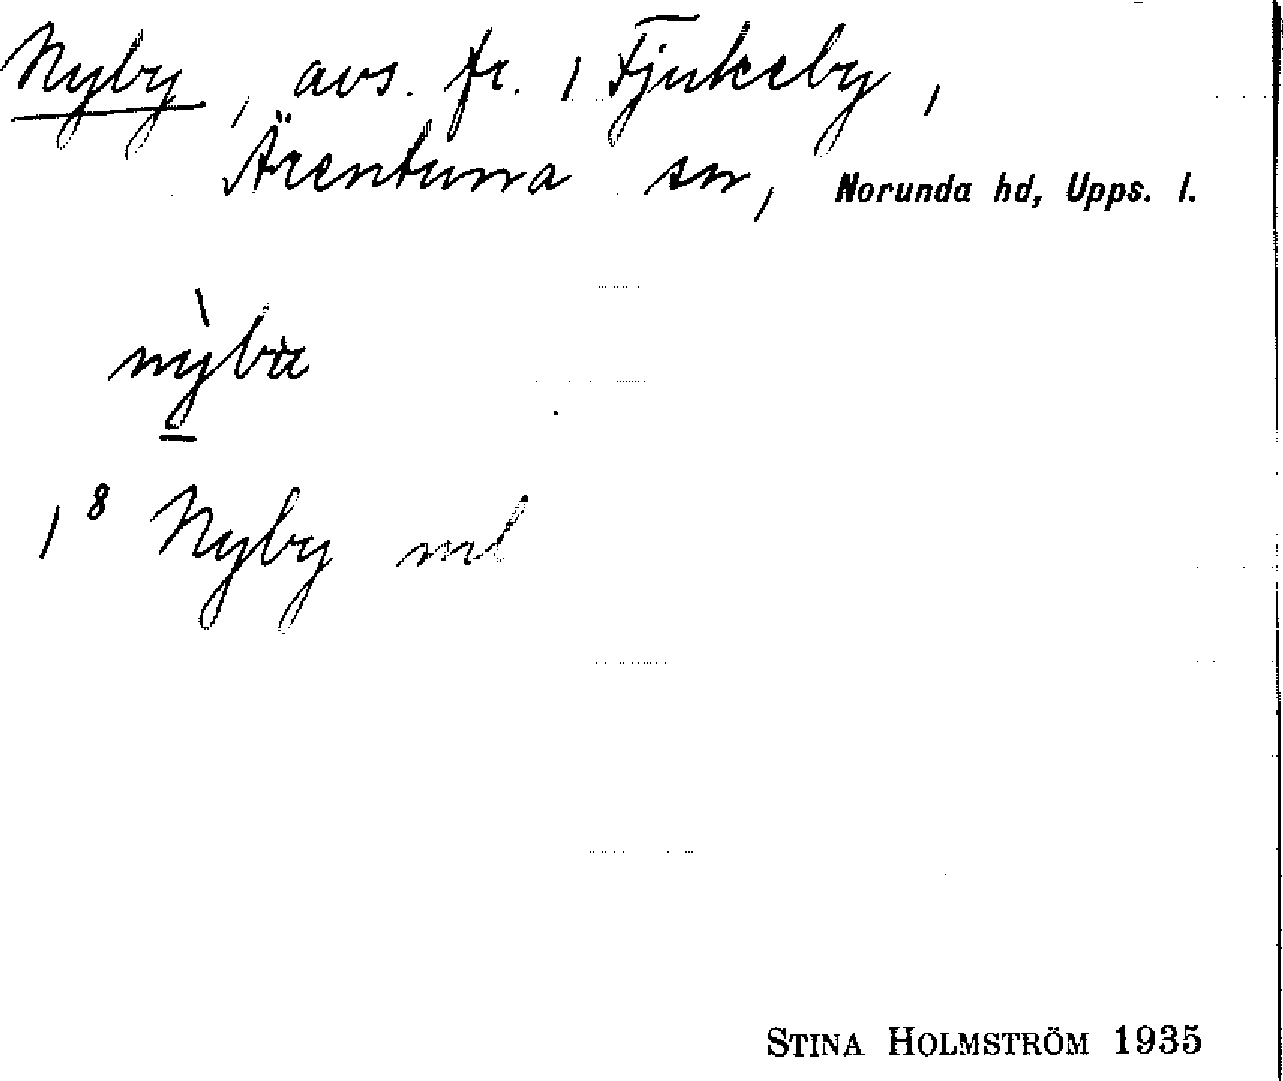 Nyby, avs. fr. 1 Fjukeby,
Ärentuna sn, Norunda hd, Upps. l.
1⁸ Nyby ml
STINA HOLMSTRÖM 1935